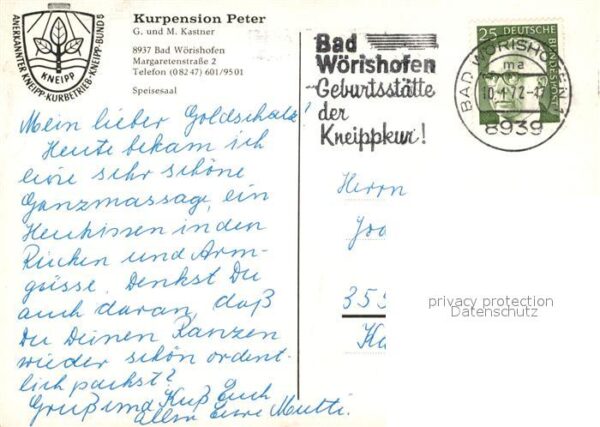 ANERKANNTER KNEIPP-KURBETRIEB-KNEIPP-BUND
KNEIPP
Kurpension Peter
G. und M. Kastner
8937 Bad Wörishofen
Margaretenstraße 2
Telefon (0 82 47) 601/95 01
Speisesaal
Mein lieber Goldschatz!
Heute bekam ich
eine sehr schöne
Ganzmassage, ein
Heukissen in den
Rücken und Arm-
güsse. Denkst Du
auch daran, daß
Du Deinen Ranzen
wieder schön ordent-
lich packst?
Gruß und Kuß Euch
allen eure Mutti.
Bad
Wörishofen
Geburtsstätte
der
Kneippkur!
25 DEUTSCHE
BUNDESPOST
BAD WÖRISHOFEN 1
ma
8939
Herrn
355
privacy protection
Datenschutz